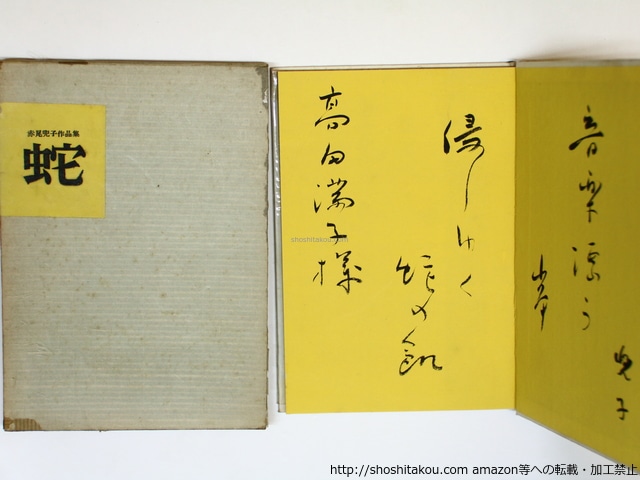 赤尾兜子作品集
蛇
音楽漂う
岸
兜子
侵しゆく
蛇の飢
高田満子様
shoshitakou.com
http://shoshitakou.com amazon等への転載・加工禁止